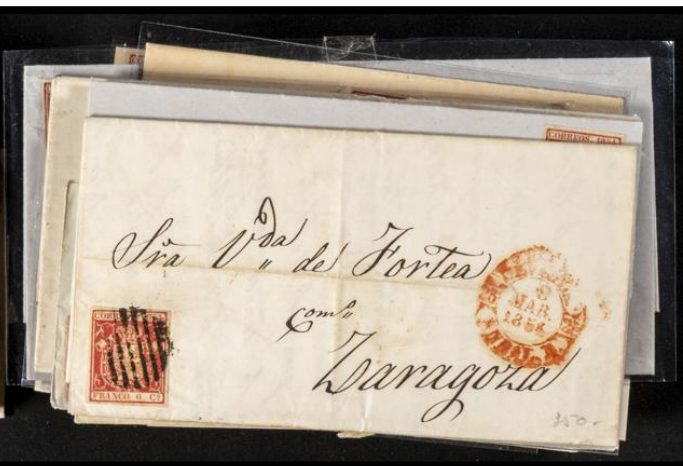 CORREOS 1854
Sra V.da de Fortea
com.o
Zaragoza
8
MAR
185
FRANCO 6. Cs
350.-